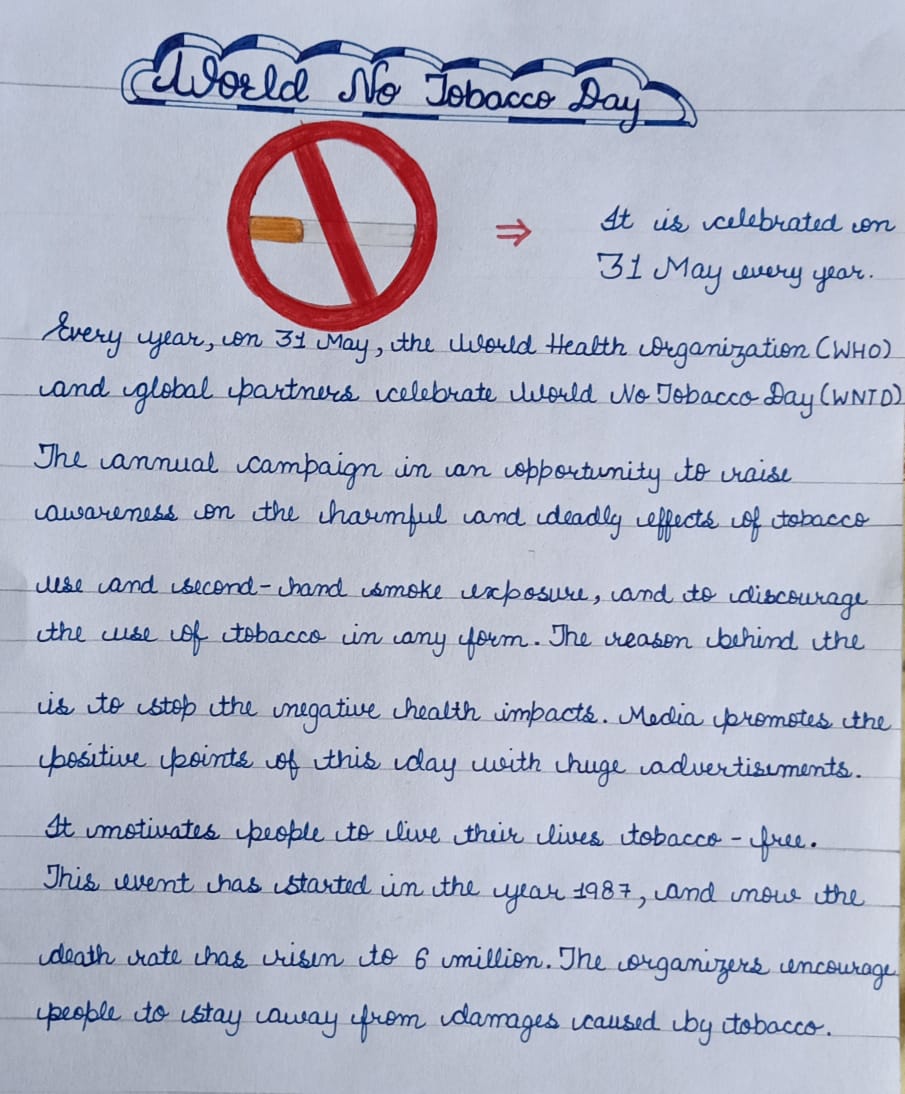 World No Tobacco Day
⇒ It is celebrated on
31 May every year.
Every year, on 31 May, the World Health Organization (WHO)
and global partners celebrate World No Tobacco Day (WNTD)
The annual campaign in an opportunity to raise
awareness on the harmful and deadly effects of tobacco
use and second-hand smoke exposure, and to discourage
the use of tobacco in any form. The reason behind the
is to stop the negative health impacts. Media promotes the
positive points of this day with huge advertisements.
It motivates people to live their lives tobacco-free.
This event has started in the year 1987, and now the
death rate has risen to 6 million. The organizers encourage
people to stay away from damages caused by tobacco.